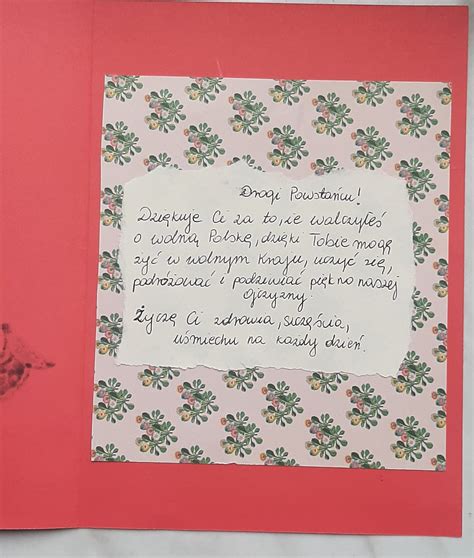 Drogi Powstańcu!
Dziękuje Ci za to, że walczyłeś
o wolną Polskę, dzięki Tobie mogę
żyć w wolnym kraju, uczyć się,
podróżować i podziwiać piękno naszej
ojczyzny.
Życzę Ci zdrowia, szczęścia,
uśmiechu na każdy dzień.